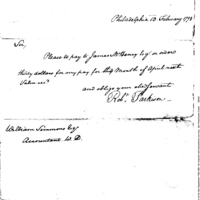 Philadelphia 13 February 179
Sir,
Please to pay to James McHenry Esq. or order
thirty dollars for my pay for the Month of April next
and oblige your obed. servant
Rob. Jackson
William Simmons Esq
Accountant W.D.